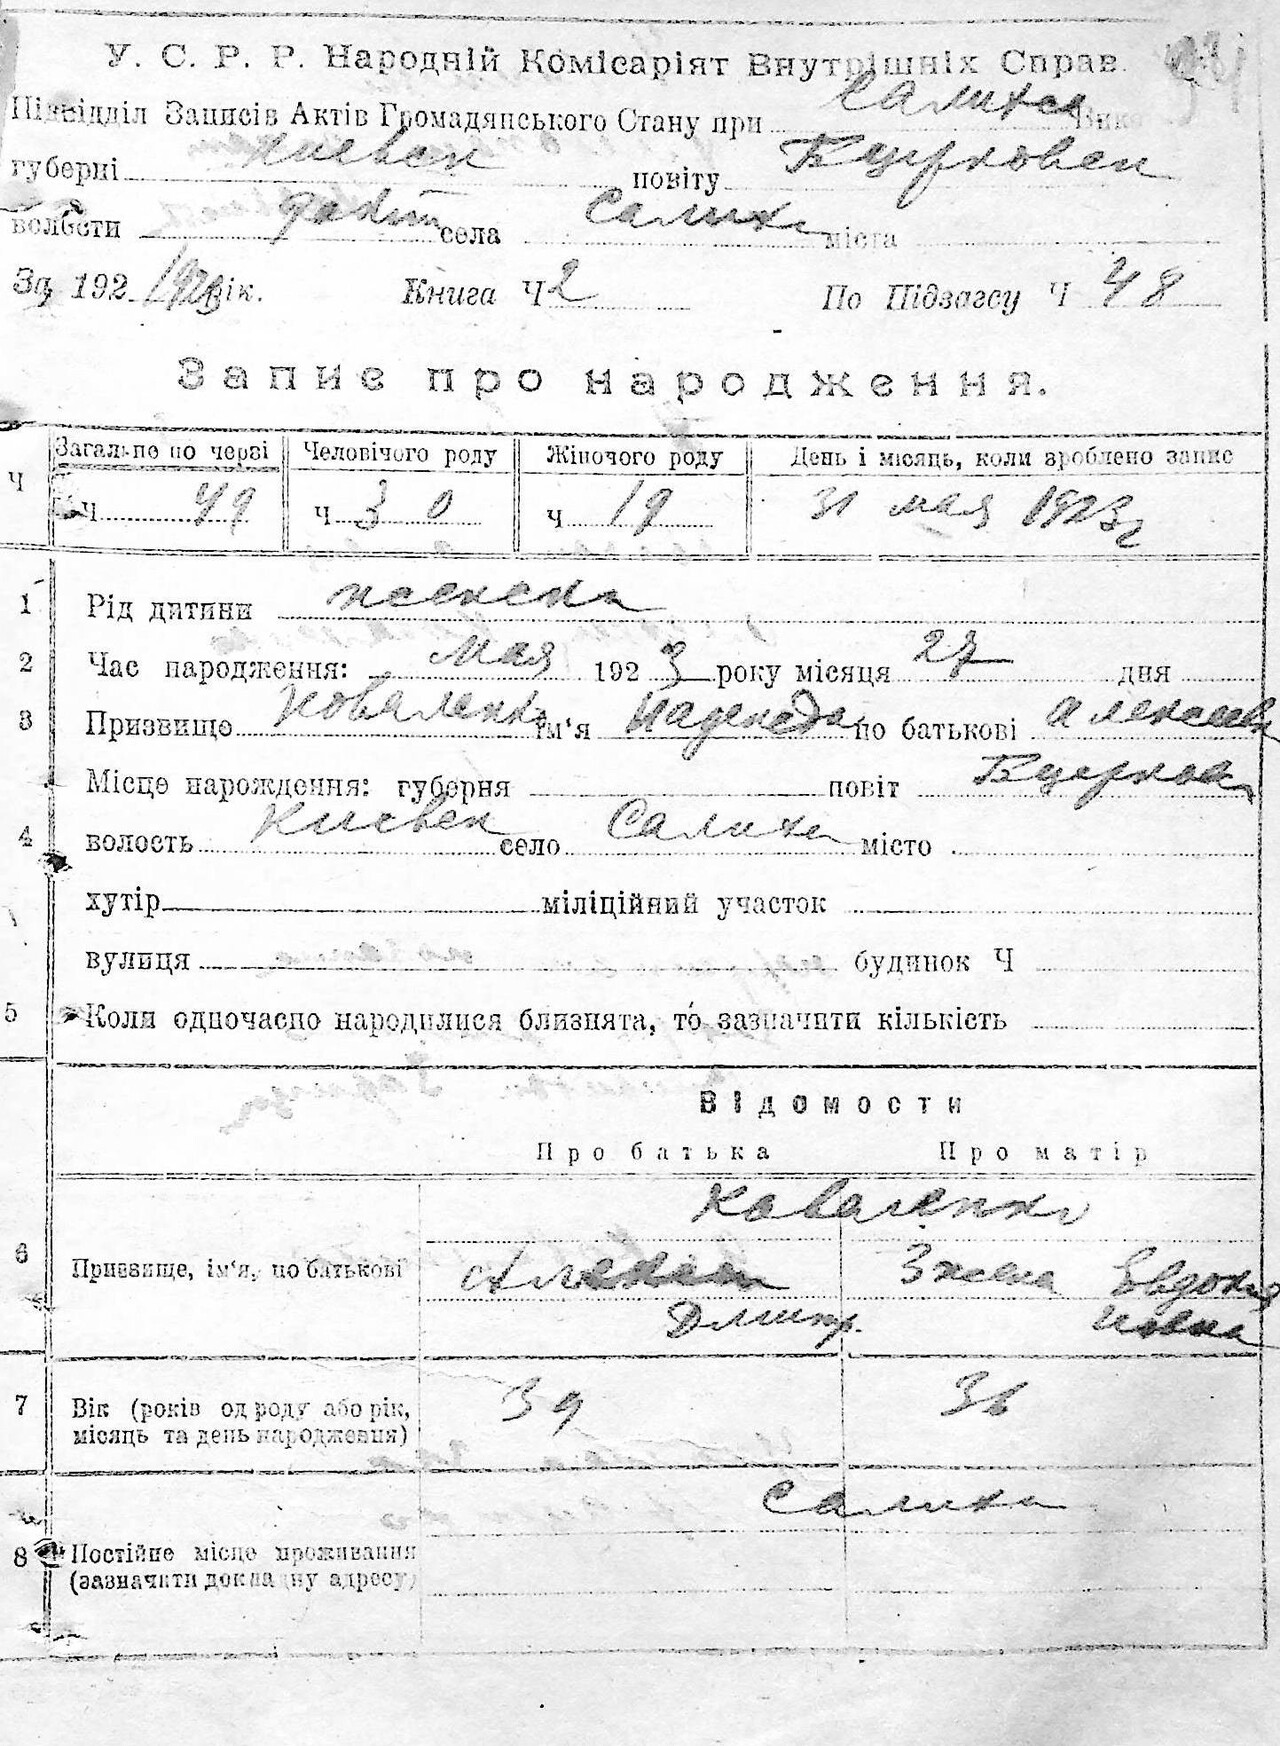 У. С. Р. Р. Народній Комісаріят Внутрішніх Справ.
Підвідділ Записів Актів Громадянського Стану при Салиха Вико
губерні Киевск повіту Бцерковск
волости села Салиха міста
За 192 1923 рік. Книга Ч 2 По Підзагсу Ч 48
Запис про народження.
Ч Загально по черзі Человічого роду Жіночого роду День і місяць, коли зроблено запис
Ч 49 Ч 30 Ч 19 31 мая 1923 г
1 Рід дитини женска
2 Час народження: мая 1923 року місяця 27 дня
3 Призвище Коваленко ім'я Надежда по батькові Алексеев
Місце нарождення: губерня повіт Бцерков
4 волость Киевск село Салиха місто
хутір міліційний участок
вулиця будинок Ч
5 Коли одночасно народилися близнята, то зазначити кількість
Відомости
Про батька Про матір
Коваленко
6 Призвище, ім'я, по батькові Алексей Евдоким
Дмитр. овна
7 Вік (років од роду або рік, 39
місяць та день народження)
Салиха
8 Постійне місце проживання
(зазначити докладну адресу)